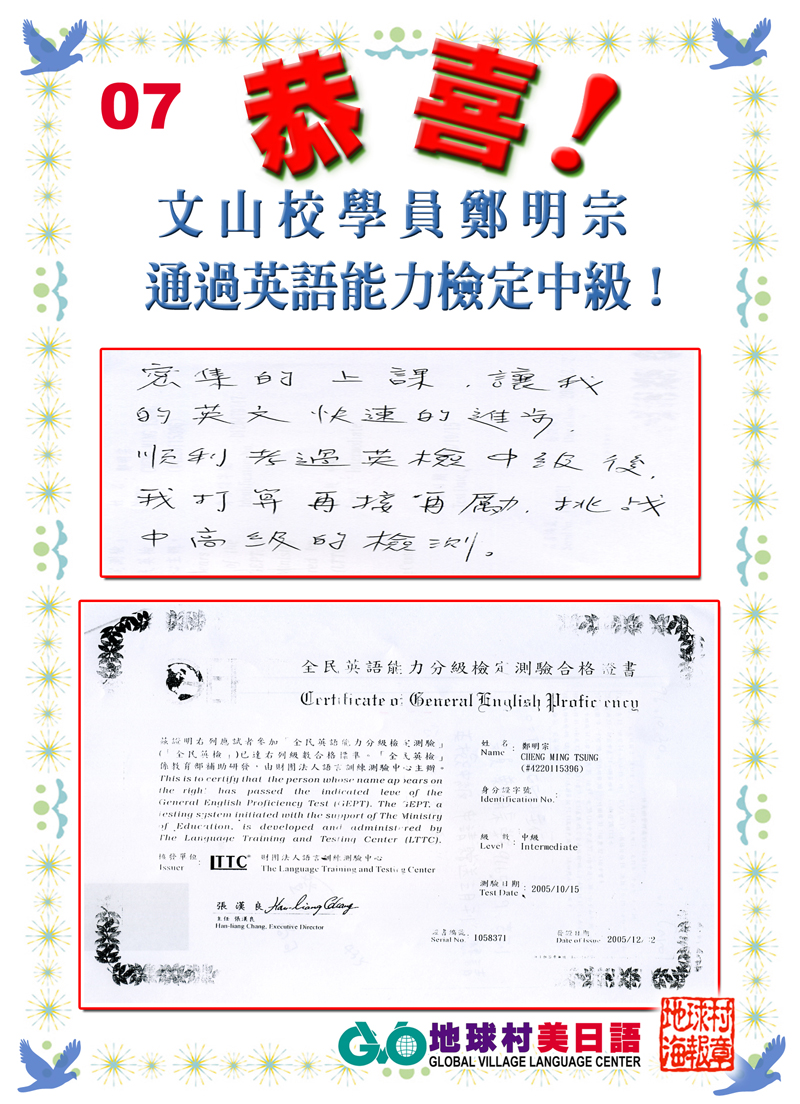 07
恭喜!
文山校學員鄭明宗
通過英語能力檢定中級！
密集的上課，讓我
的英文快速的進步，
順利考過英檢中級後，
我打算再接再勵，挑战
中高級的檢測。
全民英語能力分級檢定測驗合格證書
Certificate of General English Proficiency
茲證明右列應試者參加「全民英語能力分級檢定測驗」
(「全民英檢」)已達右列級數合格標準。「全民英檢」
係教育部補助研發，由財團法人語言訓練測驗中心主辦。
This is to certify that the person whose name appears on
the right has passed the indicated level of the
General English Proficiency Test (GEPT). The GEPT, a
testing system initiated with the support of The Ministry
of Education, is developed and administered by
The Language Training and Testing Center (LTTC).
核發單位:
Issuer
LTTC
財團法人語言訓練測驗中心
The Language Training and Testing Center
張漢良 Han-liang Chang
主任 張漢良
Han-liang Chang, Executive Director
姓名: 鄭明宗
Name CHENG MING TSUNG
(#4220115396)
身分證字號
Identification No.:
級數: 中級
Level Intermediate
測驗日期: 2005/10/15
Test Date
證書編號:
Serial No. 1058371
發證日期
Date of Issue 2005/12/
地球村美日語
GLOBAL VILLAGE LANGUAGE CENTER
地球村
海報章